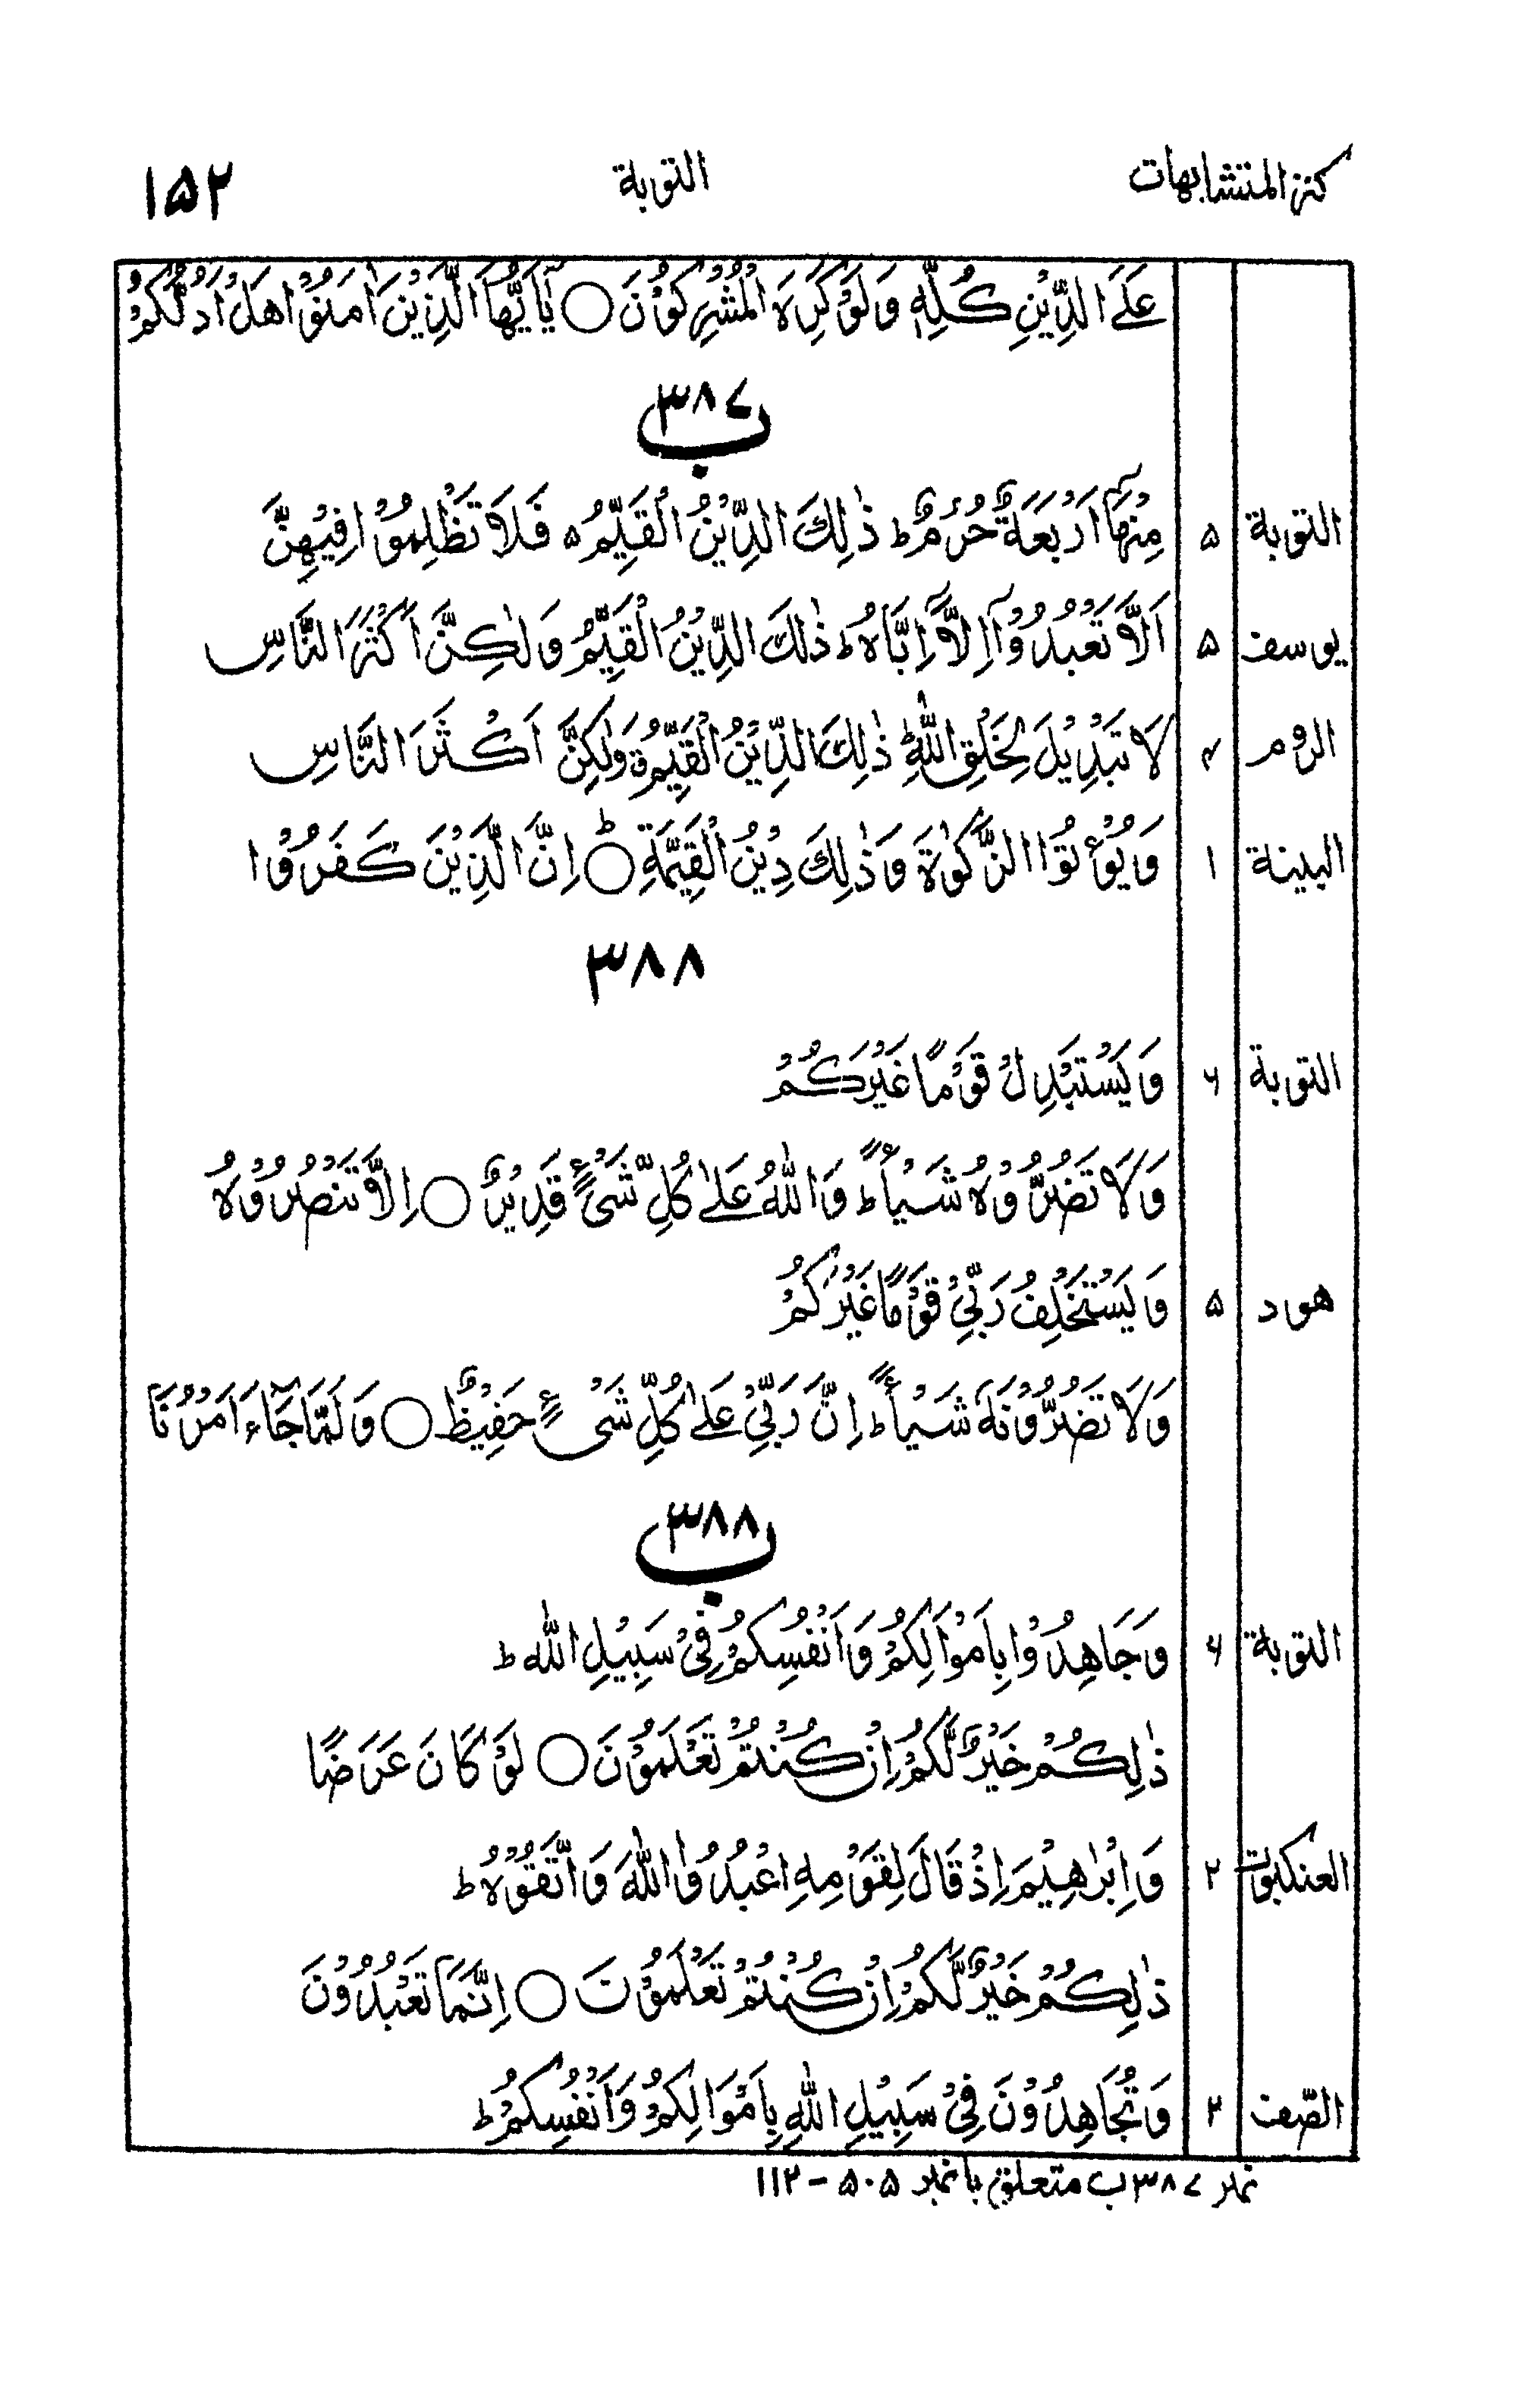 كنز المتشابهات التوبة ۱۵۲
عَلَى الدِّيْنِ كُلِّهٖ وَلَوْ كَرِهَ الْمُشْرِكُوْنَ ○ يٰۤاَيُّهَا الَّذِيْنَ اٰمَنُوْا هَلْ اَدُلُّكُمْ
۳۸۷ب
التوبة ۵ مِنْهَاۤ اَرْبَعَةٌ حُرُمٌ ؕ ذٰلِكَ الدِّيْنُ الْقَيِّمُ ۙ فَلَا تَظْلِمُوْا فِيْهِنَّ
يوسف ۵ اَلَّا تَعْبُدُوْۤا اِلَّاۤ اِيَّاهُ ؕ ذٰلِكَ الدِّيْنُ الْقَيِّمُ وَلٰكِنَّ اَكْثَرَ النَّاسِ
الروم ۴ لَا تَبْدِيْلَ لِخَلْقِ اللّٰهِ ؕ ذٰلِكَ الدِّيْنُ الْقَيِّمُ ۙ وَلٰكِنَّ اَكْثَرَ النَّاسِ
البينة ۱ وَيُؤْتُوا الزَّكٰوةَ وَذٰلِكَ دِيْنُ الْقَيِّمَةِ ○ؕ اِنَّ الَّذِيْنَ كَفَرُوْا
۳۸۸
التوبة ۶ وَيَسْتَبْدِلْ قَوْمًا غَيْرَكُمْ
وَلَا تَضُرُّوْهُ شَيْـًٔا ؕ وَاللّٰهُ عَلٰى كُلِّ شَىْءٍ قَدِيْرٌ ○ اِلَّا تَنْصُرُوْهُ
هود ۵ وَيَسْتَخْلِفُ رَبِّىْ قَوْمًا غَيْرَكُمْ
وَلَا تَضُرُّوْنَهٗ شَيْـًٔا ؕ اِنَّ رَبِّىْ عَلٰى كُلِّ شَىْءٍ حَفِيْظٌ ○ وَلَمَّا جَآءَ اَمْرُنَا
۳۸۸ب
التوبة ۶ وَجَاهِدُوْا بِاَمْوَالِكُمْ وَاَنْفُسِكُمْ فِىْ سَبِيْلِ اللّٰهِ ؕ
ذٰلِكُمْ خَيْرٌ لَّكُمْ اِنْ كُنْتُمْ تَعْلَمُوْنَ ○ لَوْ كَانَ عَرَضًا
العنكبوت ۲ وَاِبْرٰهِيْمَ اِذْ قَالَ لِقَوْمِهِ اعْبُدُوا اللّٰهَ وَاتَّقُوْهُ ؕ
ذٰلِكُمْ خَيْرٌ لَّكُمْ اِنْ كُنْتُمْ تَعْلَمُوْنَ ○ اِنَّمَا تَعْبُدُوْنَ
الصّف ۲ وَتُجَاهِدُوْنَ فِىْ سَبِيْلِ اللّٰهِ بِاَمْوَالِكُمْ وَاَنْفُسِكُمْ ؕ
نمبر ۳۸۷ب متعلق با نمبر ۵۰۵ - ۱۱۲